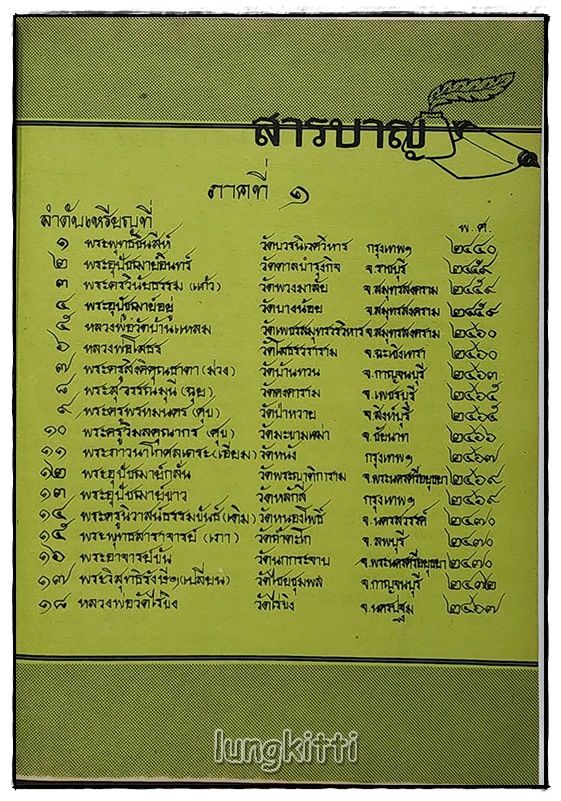 สารบาญ
ภาคที่ ๑
ลำดับเหรียญที่ พ.ศ.
๑ พระพุทธชินสีห์ วัดบวรนิเวศวิหาร กรุงเทพฯ ๒๔๔๐
๒ พระอุปัชฌาย์อินทร์ วัดตาลบำรุงกิจ จ.ราชบุรี ๒๔๕๙
๓ พระครูวินัยธรรม (แก้ว) วัดพวงมาลัย จ.สมุทรสงคราม ๒๔๕๙
๔ พระอุปัชฌาย์อยู่ วัดบางน้อย จ.สมุทรสงคราม ๒๔๕๙
๕ หลวงพ่อวัดบ้านแหลม วัดเพชรสมุทรวรวิหาร จ.สมุทรสงคราม ๒๔๖๐
๖ หลวงพ่อโสธร วัดโสธรวราราม จ.ฉะเชิงเทรา ๒๔๖๐
๗ พระครูสิงคิคุณธาดา (ม่วง) วัดบ้านทวน จ.กาญจนบุรี ๒๔๖๓
๘ พระสุวรรณมุนี (ฉุย) วัดคงคาราม จ.เพชรบุรี ๒๔๖๕
๙ พระครูพรหมนคร (ศุข) วัดป่าหวาย จ.สิงห์บุรี ๒๔๖๕
๑๐ พระครูวิมลคุณากร (ศุข) วัดมะขามเฒ่า จ.ชัยนาท ๒๔๖๖
๑๑ พระภาวนาโกศลเถระ (เอี่ยม) วัดหนัง กรุงเทพฯ ๒๔๖๗
๑๒ พระอุปัชฌาย์กลั่น วัดพระญาติการาม จ.พระนครศรีอยุธยา ๒๔๖๙
๑๓ พระอุปัชฌาย์ขาว วัดหลักสี่ กรุงเทพฯ ๒๔๖๙
๑๔ พระครูนิวาสนธรรมขันธ์ (เดิม) วัดหนองโพธิ์ จ.นครสวรรค์ ๒๔๗๐
๑๕ พระพุทธสาราจารย์ (เภา) วัดถ้ำตะโก จ.ลพบุรี ๒๔๗๐
๑๖ พระอาจารย์ขัน วัดนกกระจาบ จ.พระนครศรีอยุธยา ๒๔๗๐
๑๗ พระวิสุทธิรังษีฯ (เปลี่ยน) วัดไชยชุมพล จ.กาญจนบุรี ๒๔๗๒
๑๘ หลวงพ่อวัดไร่ขิง วัดไร่ขิง จ.นครปฐม ๒๔๖๗
lungkitti